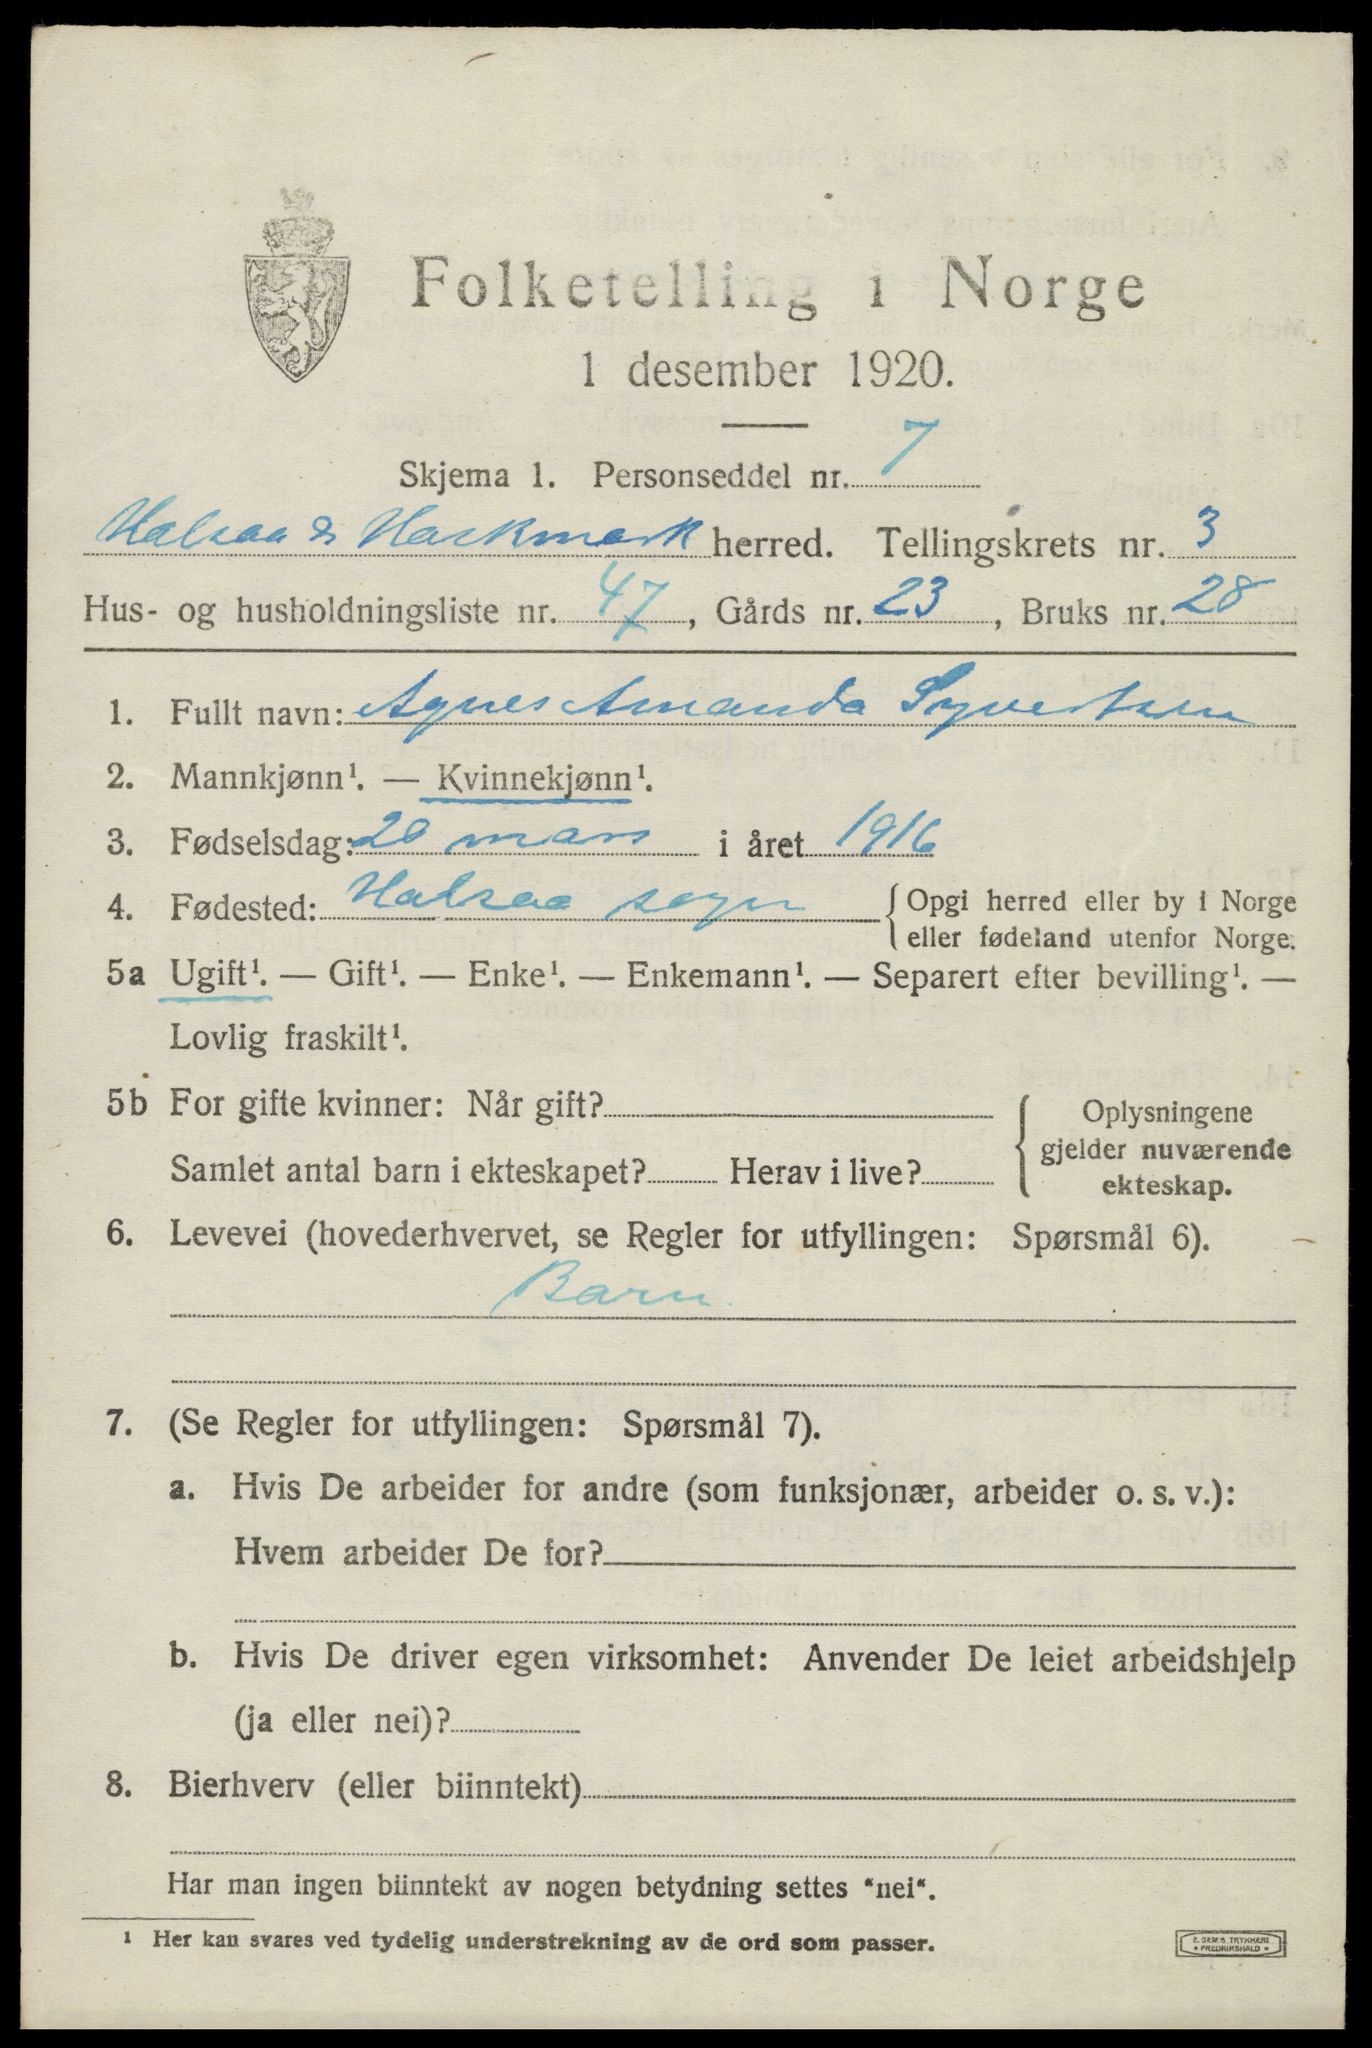 Folketelling i Norge
1 desember 1920.
Skjema 1. Personseddel nr. 7
Halsaa & Harkmark herred. Tellingskrets nr. 3
Hus- og husholdningsliste nr. 47, Gårds nr. 23, Bruks nr. 28
1. Fullt navn: Agnes Amanda Syvertsen
2. Mannkjønn¹. — Kvinnekjønn¹.
3. Fødselsdag: 20 mars i året 1916
4. Fødested: Halsaa sogn { Opgi herred eller by i Norge
eller fødeland utenfor Norge.
5a Ugift¹. — Gift¹. — Enke¹. — Enkemann¹. — Separert efter bevilling¹. —
Lovlig fraskilt¹.
5b For gifte kvinner: Når gift?
Samlet antal barn i ekteskapet? Herav i live?
{ Oplysningene
gjelder nuværende
ekteskap.
6. Levevei (hovederhvervet, se Regler for utfyllingen: Spørsmål 6).
Barn
7. (Se Regler for utfyllingen: Spørsmål 7).
a. Hvis De arbeider for andre (som funksjonær, arbeider o. s. v.):
Hvem arbeider De for?
b. Hvis De driver egen virksomhet: Anvender De leiet arbeidshjelp
(ja eller nei)?
8. Bierhverv (eller biinntekt)
Har man ingen biinntekt av nogen betydning settes "nei".
¹ Her kan svares ved tydelig understrekning av de ord som passer.
E. SEM'S TRYKKERI
FREDRIKSHALD